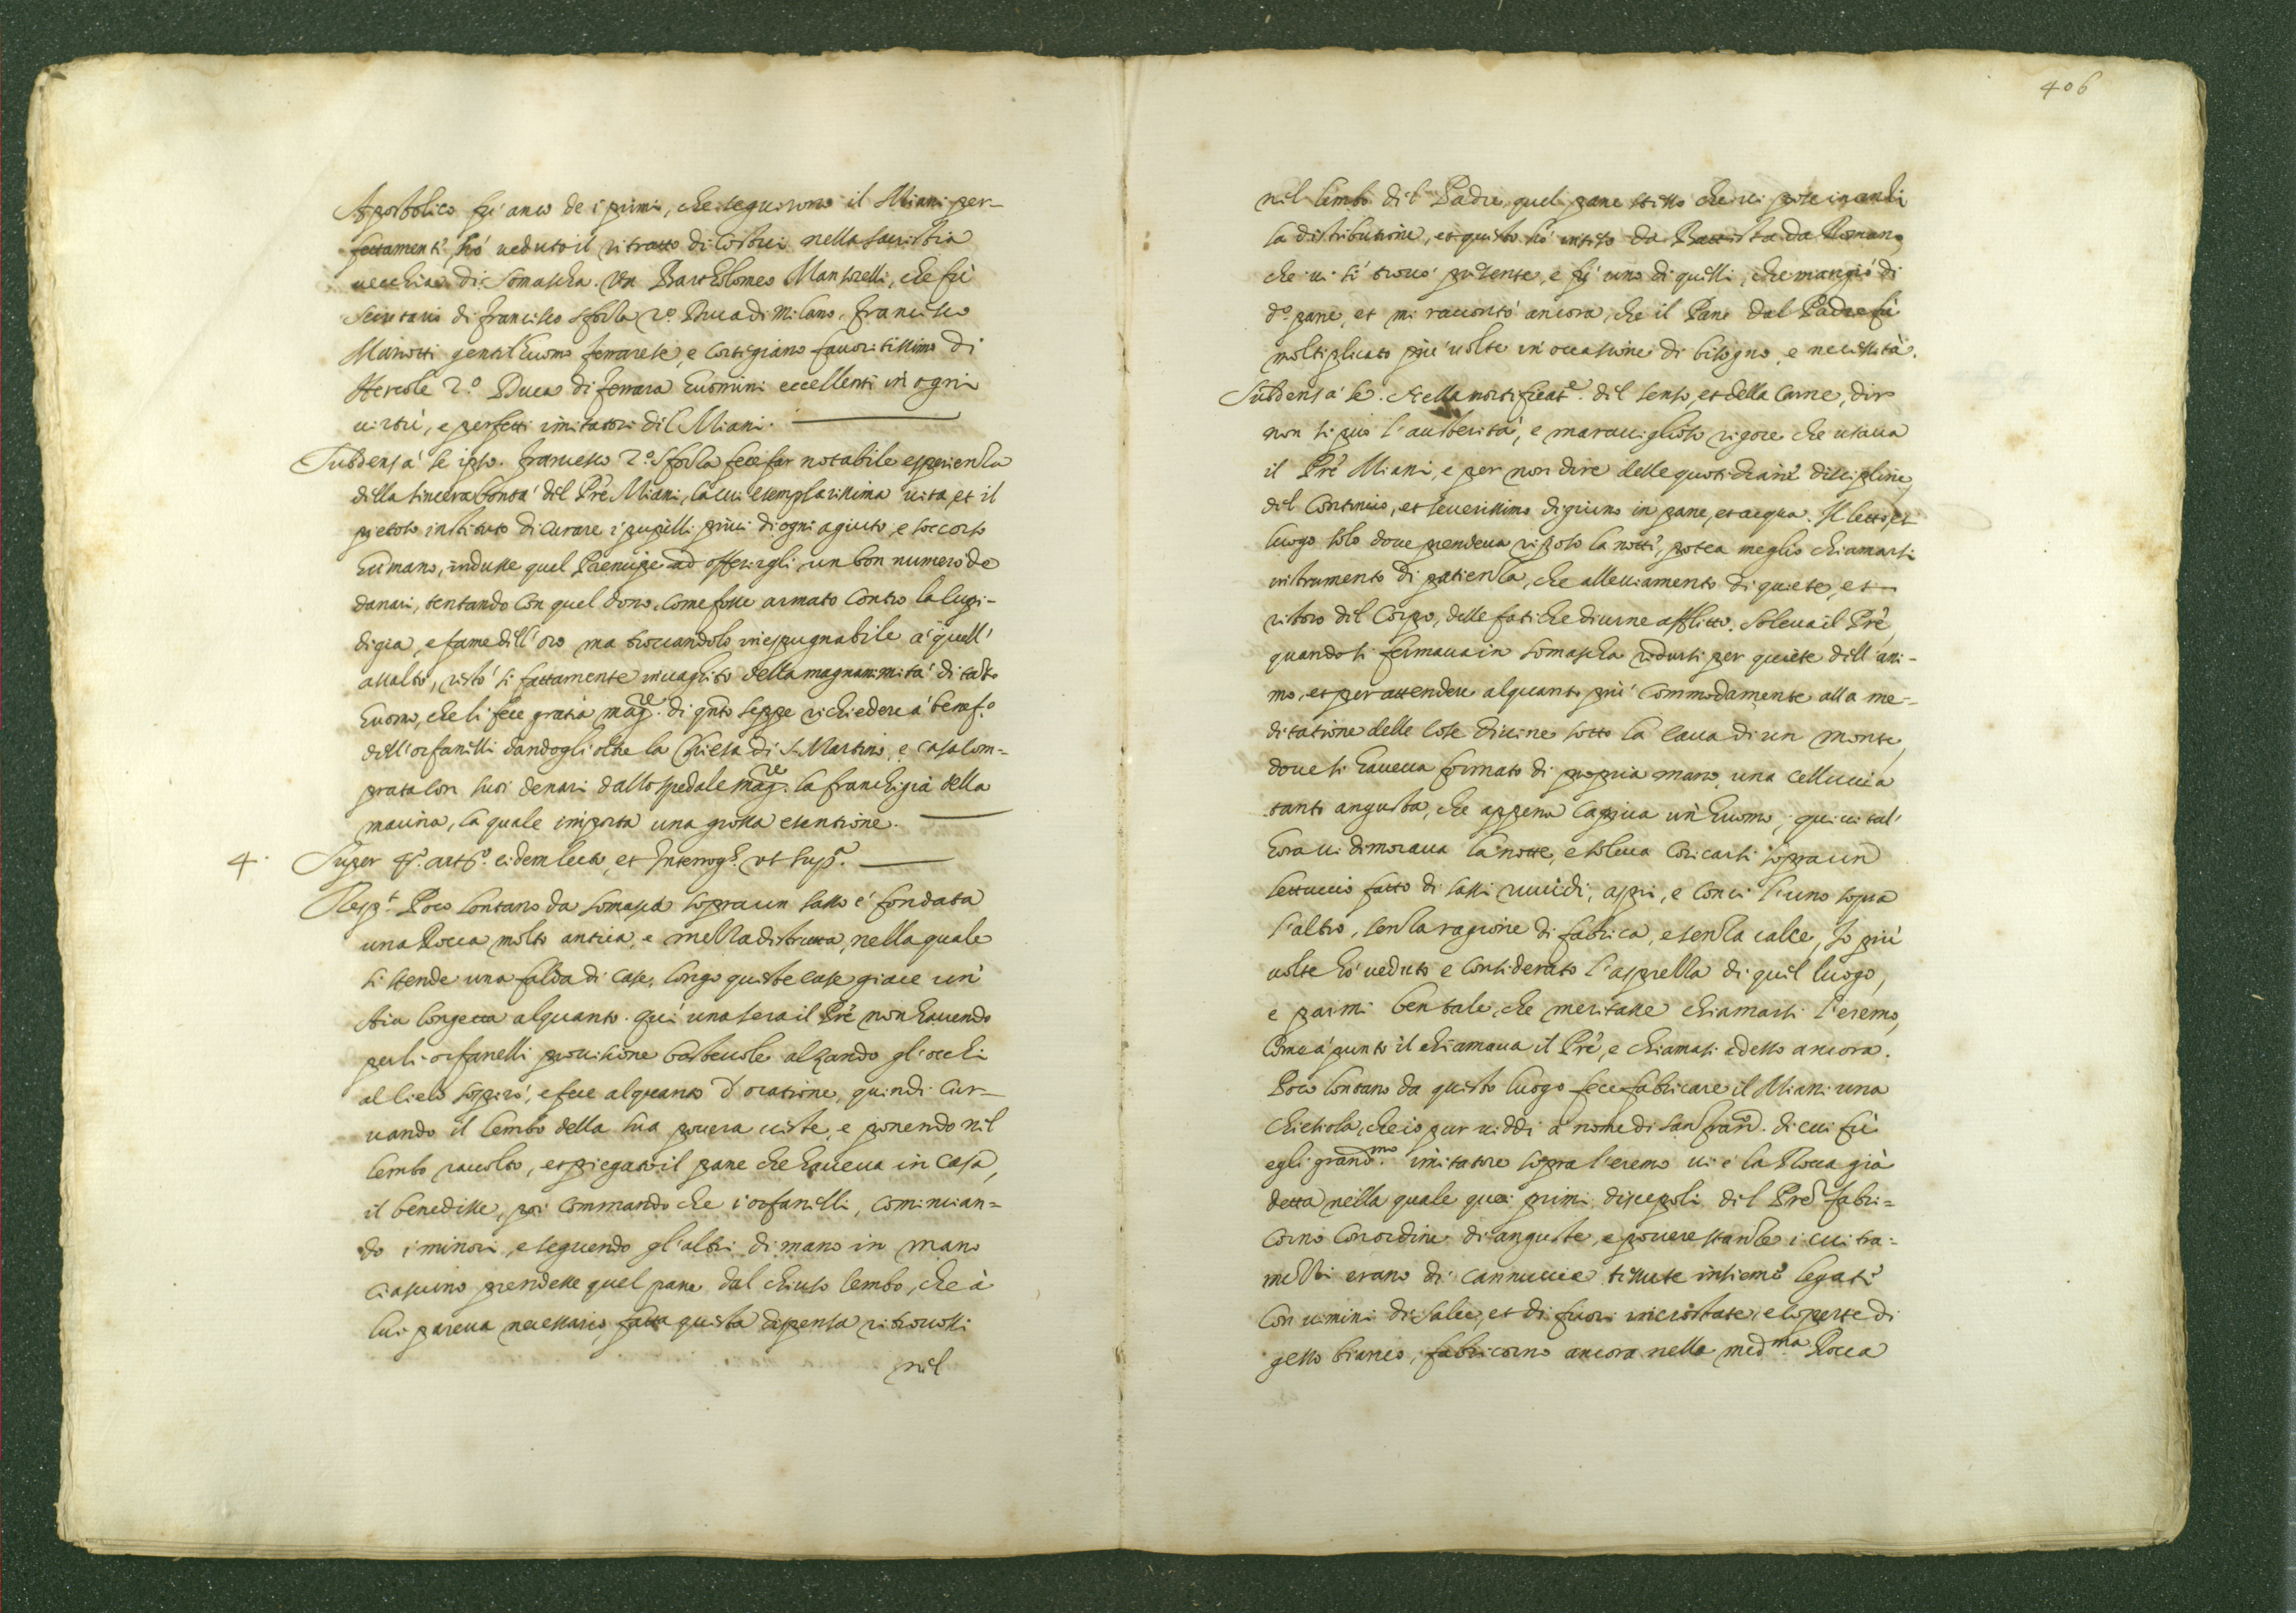 Apostolico fu anco de i primi, che seguirono il Miani per-
fettamente, hó ueduto il ritratto di costui nella sacristia
uecchia di Somascha. Un Bartholomeo Mantorelli, che fù
Secretario di francisco Sforza 2º Duca di Milano. francisco
Mariotti gentilhuomo ferrarese, e cortigiano fauoritissimo di
Hercole 2º Duca di ferrara huomini eccellenti in ogni
uirtù, e perfetti imitatori dil Miani.
Subdens à se ipso. francesco 2º Sforza fece far notabile esperienza
della sincera bontà dil Prè Miani, la cui esemplarissima uita, et il
pietoso instituto di curare i pupilli priui di ogni agiuto, e soccorso
humano, indusse quel Prencipe ad offerirgli un bon numero de
danari, tentando con quel dono, come fosse armato contro la cupi-
digia, e fame dell'oro ma trouandolo inespugnabile à quell'
assalto, restò si fattamente inuaghito della magnanimità di tal
huomo, che li fece gratia magre. di qnto seppe richiedere à benef.º
dell'orfanelli dandogli oltre la Chiesa di S. Martino, e casa com=
prata con suoi denari dall'ospedale magre. la franchigia della
macina, la quale importa una grossa esentione.
4. Super 4º. artº. eidem lecto, et Interrog.s ut supª.
Resp.t Poco lontano da Somasca sopra un sasso é fondata
una Rocca molto antica, e mezza distrutta, nella quale
si stende una falda di case, longo queste case giace un'
Aia longetta alquanto. qui una sera il Prè non hauendo
per li orfanelli prouisione basteuole alzando gl'occhi
al cielo sospirò, e fece alquanto d'oratione, quindi cur-
uando il lembo della sua pouera ueste, e ponendo nil
lembo raccolto, et piegato il pane che haueua in casa,
il benedisse, poi commando che i orfanelli, comincian=
do i minori, e seguendo gl'altri di mano in mano
ciascuno prendesse quel pane dal chiuso lembo, che à
lui pareua necessario, fatta questa dispensa ritrouossi
nil
406
nil lembo dil Padre quel pane stesso che ui pose inanti
la distributione, et questo hò inteso da Battista da Romano
che ui si trouò presente, e fù uno di quelli, che mangiò di
dº pane, et mi raccontò ancora, che il Pane dal Padre fù
moltiplicato più uolte in occasione di bisogno, e necessità.
Subdens à se. Nella mortificat.e dil senso, et della carne, dir
non si può l'austerità, e marauiglioso rigore che usaua
il Prè Miani, e per non dire delle quotidiane discipline,
dil continuo, et seuerissimo digiuno in pane, et acqua. Il letto, et
luogo solo doue prendeua riposo la notte, potea meglio chiamarsi
instrumento di patienza, che alleuiamento di quiete, et
ristoro dil corpo, delle fatiche diurne afflitto. Soleua il Prè,
quando si fermaua in Somascha ridursi per quiete dell'ani-
mo, et per attendere alquanto più commodamente alla me-
ditatione delle cose diuine sotto la caua di un monte,
doue si haueua formato di propria mano una celluccia
tanto angusta, che appena capiua un'huomo, quiui tal'
hora ui dimoraua la notte, e soleua coricarsi sopra un
lettuccio fatto di sassi ruuidi, aspri, e conci l'uno sopra
l'altro, senza ragione di fabrica, e senza calce, Io più
uolte hó ueduto e considerato l'asprezza di quel luogo,
e parmi ben tale, che meritasse chiamarsi l'eremo,
come à punto il chiamaua il Prè, e chiamasi adesso ancora.
Poco lontano da questo luogo fece fabricare il Miani una
chiesiola, che io pur uiddi à nome di San francº. di cui fù
egli grandmo. imitatore sopra l'eremo ui è la Rocca già
detta nella quale quei primi discepoli dil Prè fabri=
corno con ordine di anguste, e pouere stanze i cui tra=
mezzi erano di cannuccie tessute insieme legati
con uimini di salice, et di fuori incrostate, e coperte di
gesso bianco, fabricorno ancora nella medma Rocca